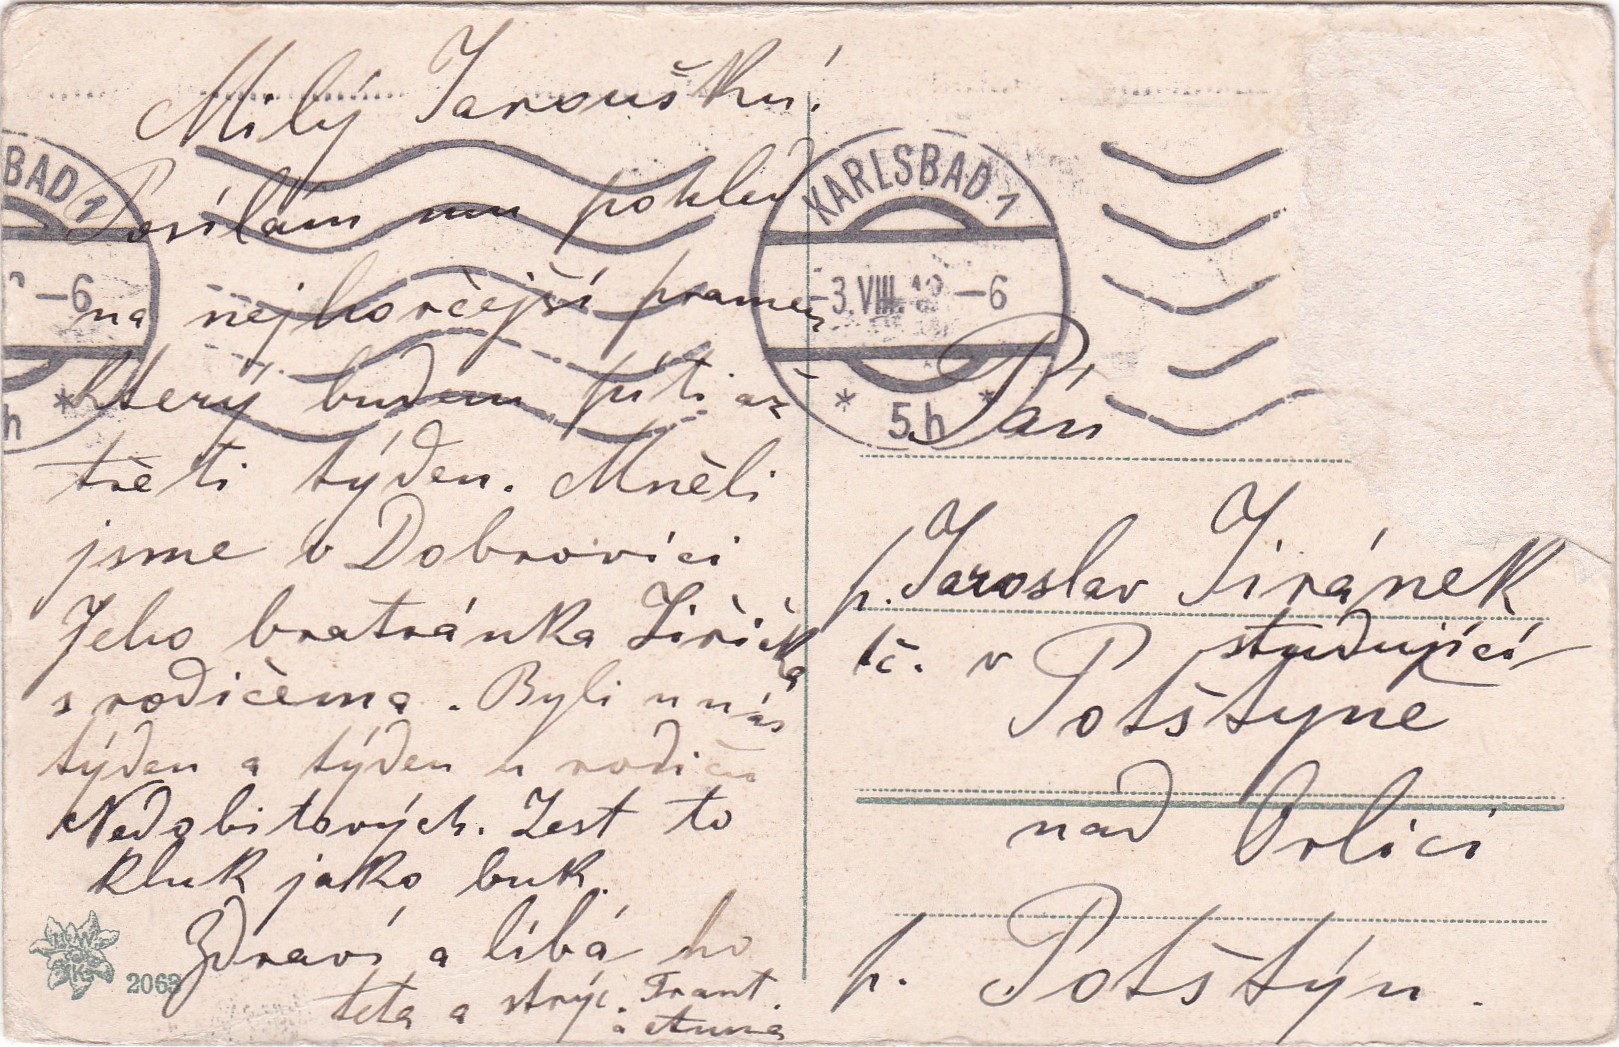 Milý Jaroušku!
Posílám mu pohled
na nejhorčejší pramen
který budem píti až
třeti týden. Mněli
jsme v Dobrovici
Jeho bratránka Jiřička
s rodičema. Byli u nás
týden a týden u rodičů
Nedobitových. Jest to
kluk jako buk.
Zdraví a líbá ho
teta a strýc. Frant.
a Anna
2063
BAD 1
-6
h
KARLSBAD 1
3.VIII. -6
5h
Pán
p. Jaroslav Jiránek
studující
tč. v Potštyne
nad Orlici
p. Potštýn.